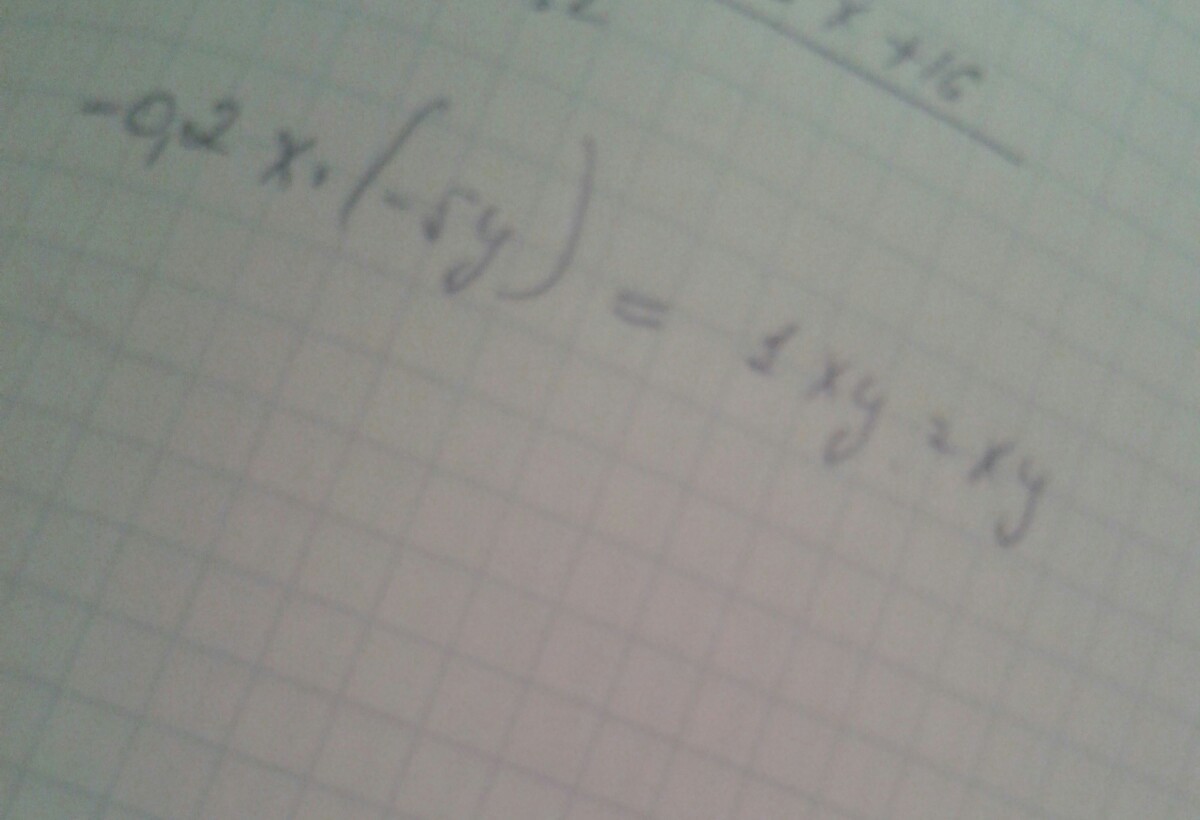 x + 16
-0,2 x · (-5y) = 1 xy = xy